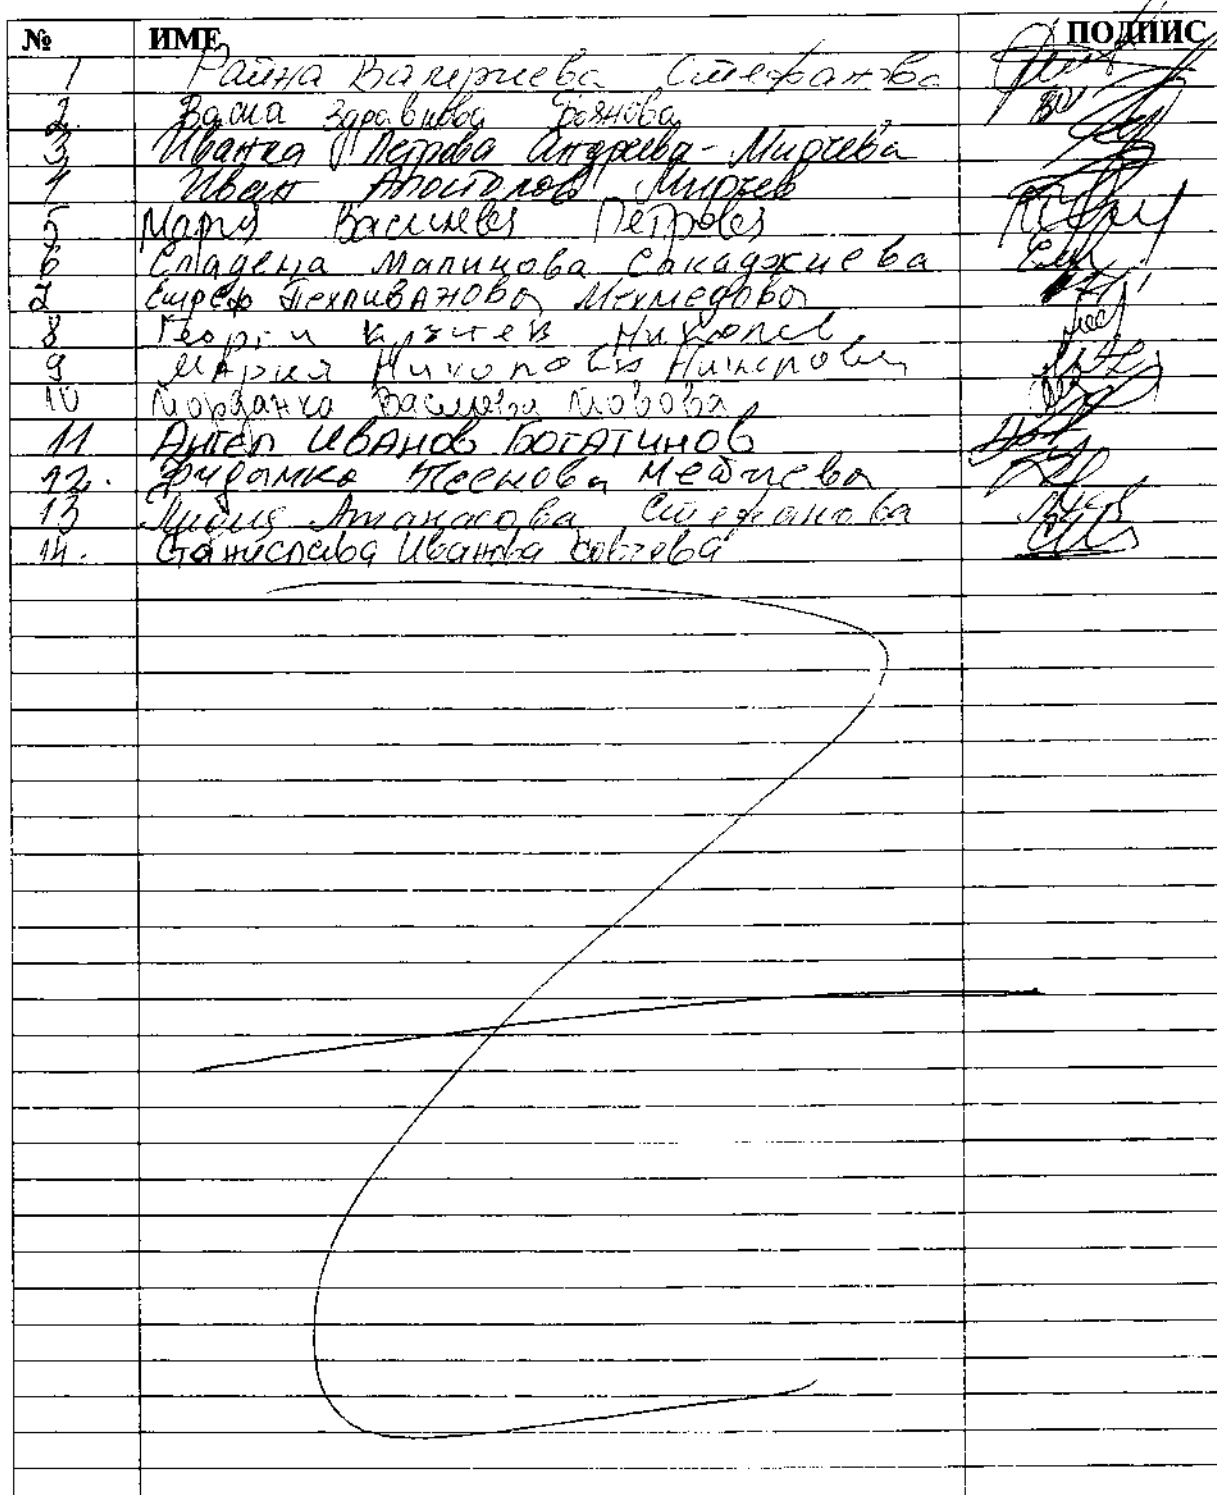 № ИМЕ ПОДПИС
1 Райна Валериева Стефанова
2. Васка Здравкова Боянова
3 Иванка Петрова Андреева-Мирчева
4 Иван Апостолов Мирчев
5 Мария Василева Петрова
6 Сладена Малинова Сакаджиева
7 Пехливанова Мехмедова
8 Георги Николов
9 Мария Николова
10 Йорданка Василева Йовова
11 Ангел Иванов Богатинов
12. Асенова
13 Лидия Атанасова Стефанова
14. Станислава Иванова